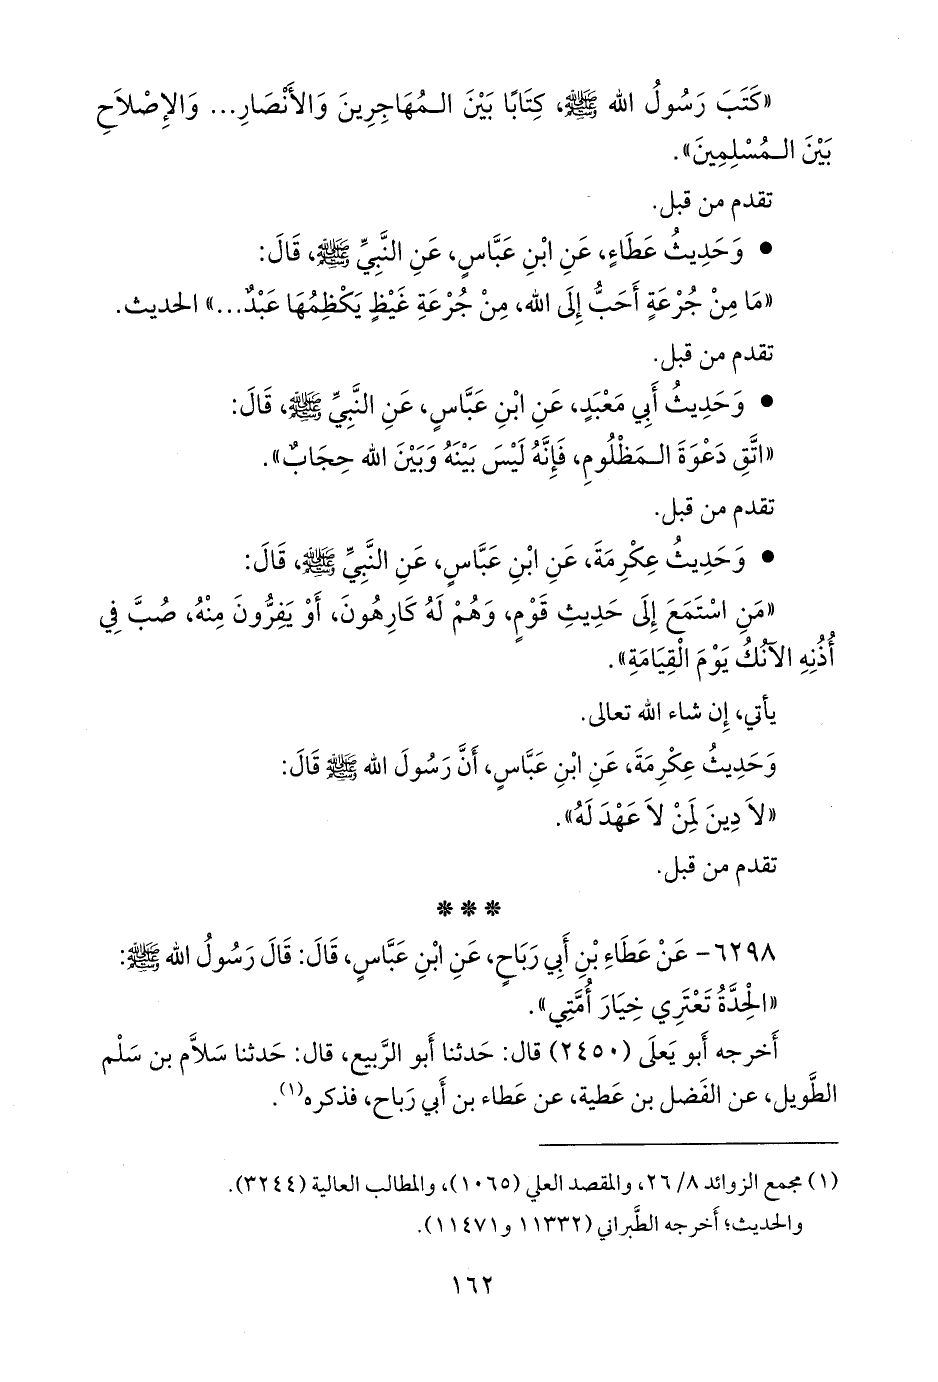 «كَتَبَ رَسُولُ الله ﷺ، كِتَابًا بَيْنَ الـمُهَاجِرِينَ وَالأَنْصَارِ... وَالإِصْلاَحِ
بَيْنَ الـمُسْلِمِينَ».
تقدم من قبل.
• وَحَدِيثُ عَطَاءٍ، عَنِ ابْنِ عَبَّاسٍ، عَنِ النَّبِيِّ ﷺ، قَالَ:
«مَا مِنْ جُرْعَةٍ أَحَبُّ إِلَى الله، مِنْ جُرْعَةِ غَيْظٍ يَكْظِمُهَا عَبْدٌ...» الحديث.
تقدم من قبل.
• وَحَدِيثُ أَبِي مَعْبَدٍ، عَنِ ابْنِ عَبَّاسٍ، عَنِ النَّبِيِّ ﷺ، قَالَ:
«اتَّقِ دَعْوَةَ الـمَظْلُومِ، فَإِنَّهُ لَيْسَ بَيْنَهُ وَبَيْنَ الله حِجَابٌ».
تقدم من قبل.
• وَحَدِيثُ عِكْرِمَةَ، عَنِ ابْنِ عَبَّاسٍ، عَنِ النَّبِيِّ ﷺ، قَالَ:
«مَنِ اسْتَمَعَ إِلَى حَدِيثِ قَوْمٍ، وَهُمْ لَهُ كَارِهُونَ، أَوْ يَفِرُّونَ مِنْهُ، صُبَّ فِي
أُذُنِهِ الآنُكُ يَوْمَ الْقِيَامَةِ».
يأتي، إِن شاء الله تعالى.
وَحَدِيثُ عِكْرِمَةَ، عَنِ ابْنِ عَبَّاسٍ، أَنَّ رَسُولَ الله ﷺ قَالَ:
«لاَ دِينَ لِمَنْ لاَ عَهْدَ لَهُ».
تقدم من قبل.
***
٦٢٩٨- عَنْ عَطَاءِ بْنِ أَبِي رَبَاحٍ، عَنِ ابْنِ عَبَّاسٍ، قَالَ: قَالَ رَسُولُ الله ﷺ:
«الْحِدَّةُ تَعْتَرِي خِيَارَ أُمَّتِي».
أَخرجه أَبو يَعلَى (٢٤٥٠) قال: حَدثنا أَبو الرَّبيع، قال: حَدثنا سَلاَّم بن سَلْم
الطَّويل، عن الفَضل بن عَطية، عن عَطاء بن أَبي رَباح، فذكره(١).
(١) مجمع الزوائد ٨/ ٢٦، والمقصد العلي (١٠٦٥)، والمطالب العالية (٣٢٤٤).
والحديث؛ أخرجه الطَّبراني (١١٣٣٢ و١١٤٧١).
١٦٢